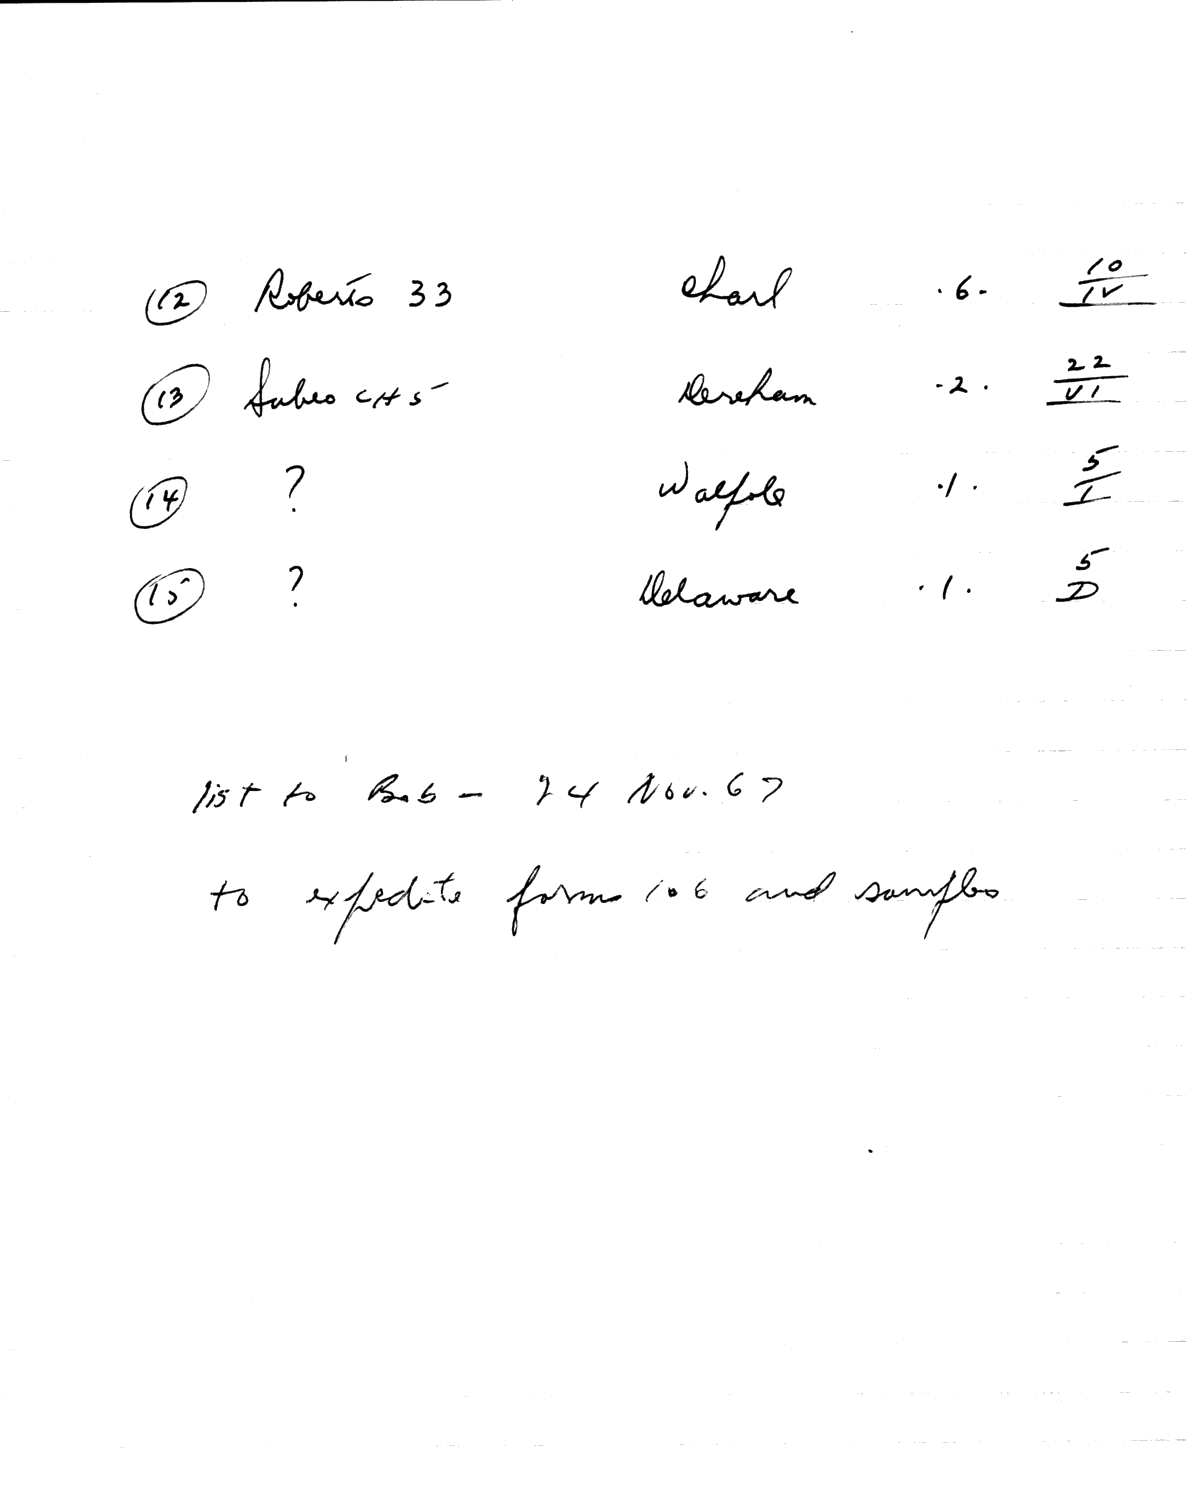 (12) Roberts 33 Charl .6. 10/IV
(13) CH 5 Dereham .2. 22/VI
(14) ? Walpole .1. 5/I
(15) ? Delaware .1. 5 D
list to Bob - 24 Nov. 67
to expedite forms 106 and samples